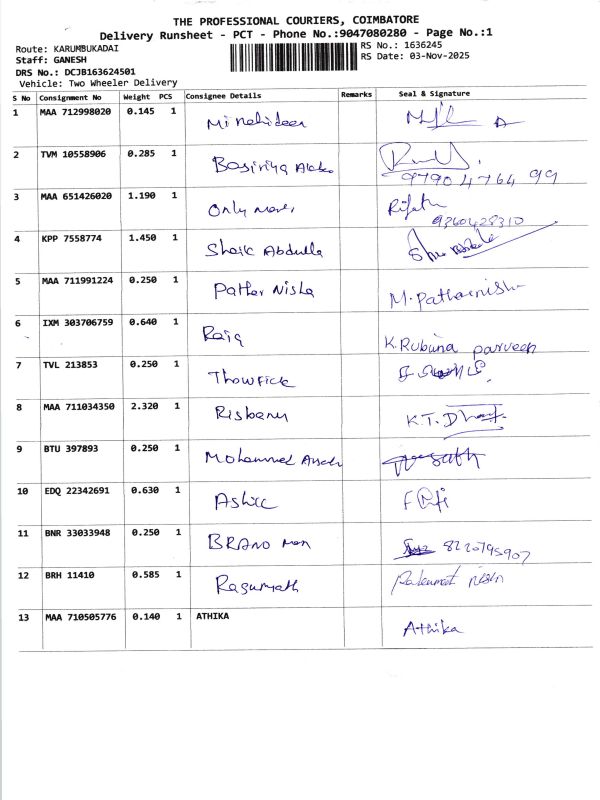 THE PROFESSIONAL COURIERS, COIMBATORE
Delivery Runsheet - PCT - Phone No.:9047080280 - Page No.:1
Route: KARUMBUKADAI RS No.: 1636245
Staff: GANESH RS Date: 03-Nov-2025
DRS No.: DCJB163624501
Vehicle: Two Wheeler Delivery
S No Consignment No Weight PCS Consignee Details Remarks Seal & Signature
1 MAA 712998020 0.145 1
2 TVM 10558906 0.285 1
9790 4764 99
3 MAA 651426020 1.190 1 Only
9360428310
4 KPP 7558774 1.450 1 Shaik Abdulla
5 MAA 711991224 0.250 1 Nisha M.
6 IXM 303706759 0.640 1 K.Rubina parveen
7 TVL 213853 0.250 1 Thowfick
8 MAA 711034350 2.320 1 K.T.
9 BTU 397893 0.250 1 Mohammed
10 EDQ 22342691 0.630 1
11 BNR 33033948 0.250 1 8220795907
12 BRH 11410 0.585 1
13 MAA 710505776 0.140 1 ATHIKA Athika